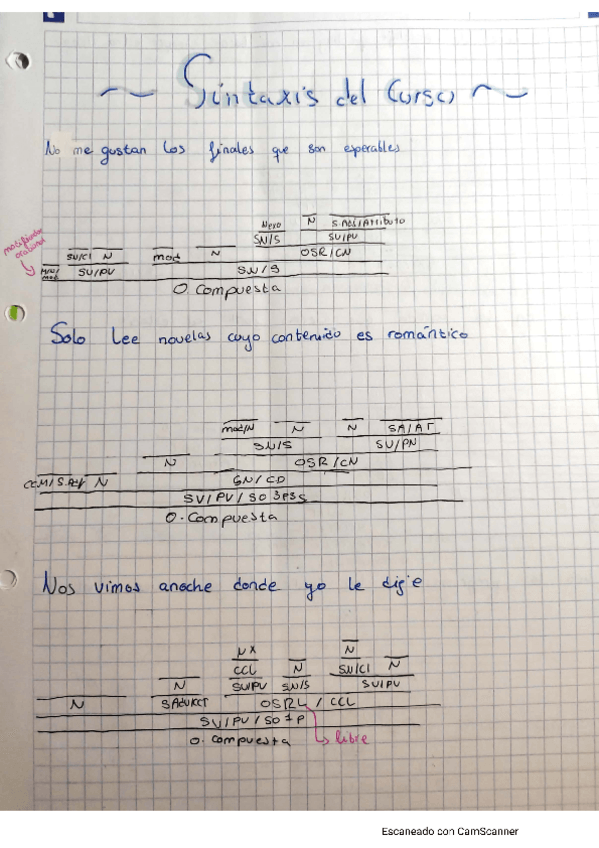 ~ Sintaxis del Curso ~
No me gustan los finales que son esperables
Nexo N S.Adj/Atributo
SN/S SV/PV
modificador oracional
SN/CI N mod N OSR/CN
SV/PV SN/S
O. Compuesta
Solo lee novelas cuyo contenido es romántico
mod/N N N SA/AT
SN/S SV/PN
N OSR/CN
N GN/CD
SV/PV/SO 3PS
O. Compuesta
Nos vimos anoche donde yo le dije
NX N
CCL N SN/CI N
N SV/PV SN/S SV/PV
N SAdv/CCT OSRL / CCL
SV/PV/SO 1P
O. Compuesta → libre
Escaneado con CamScanner